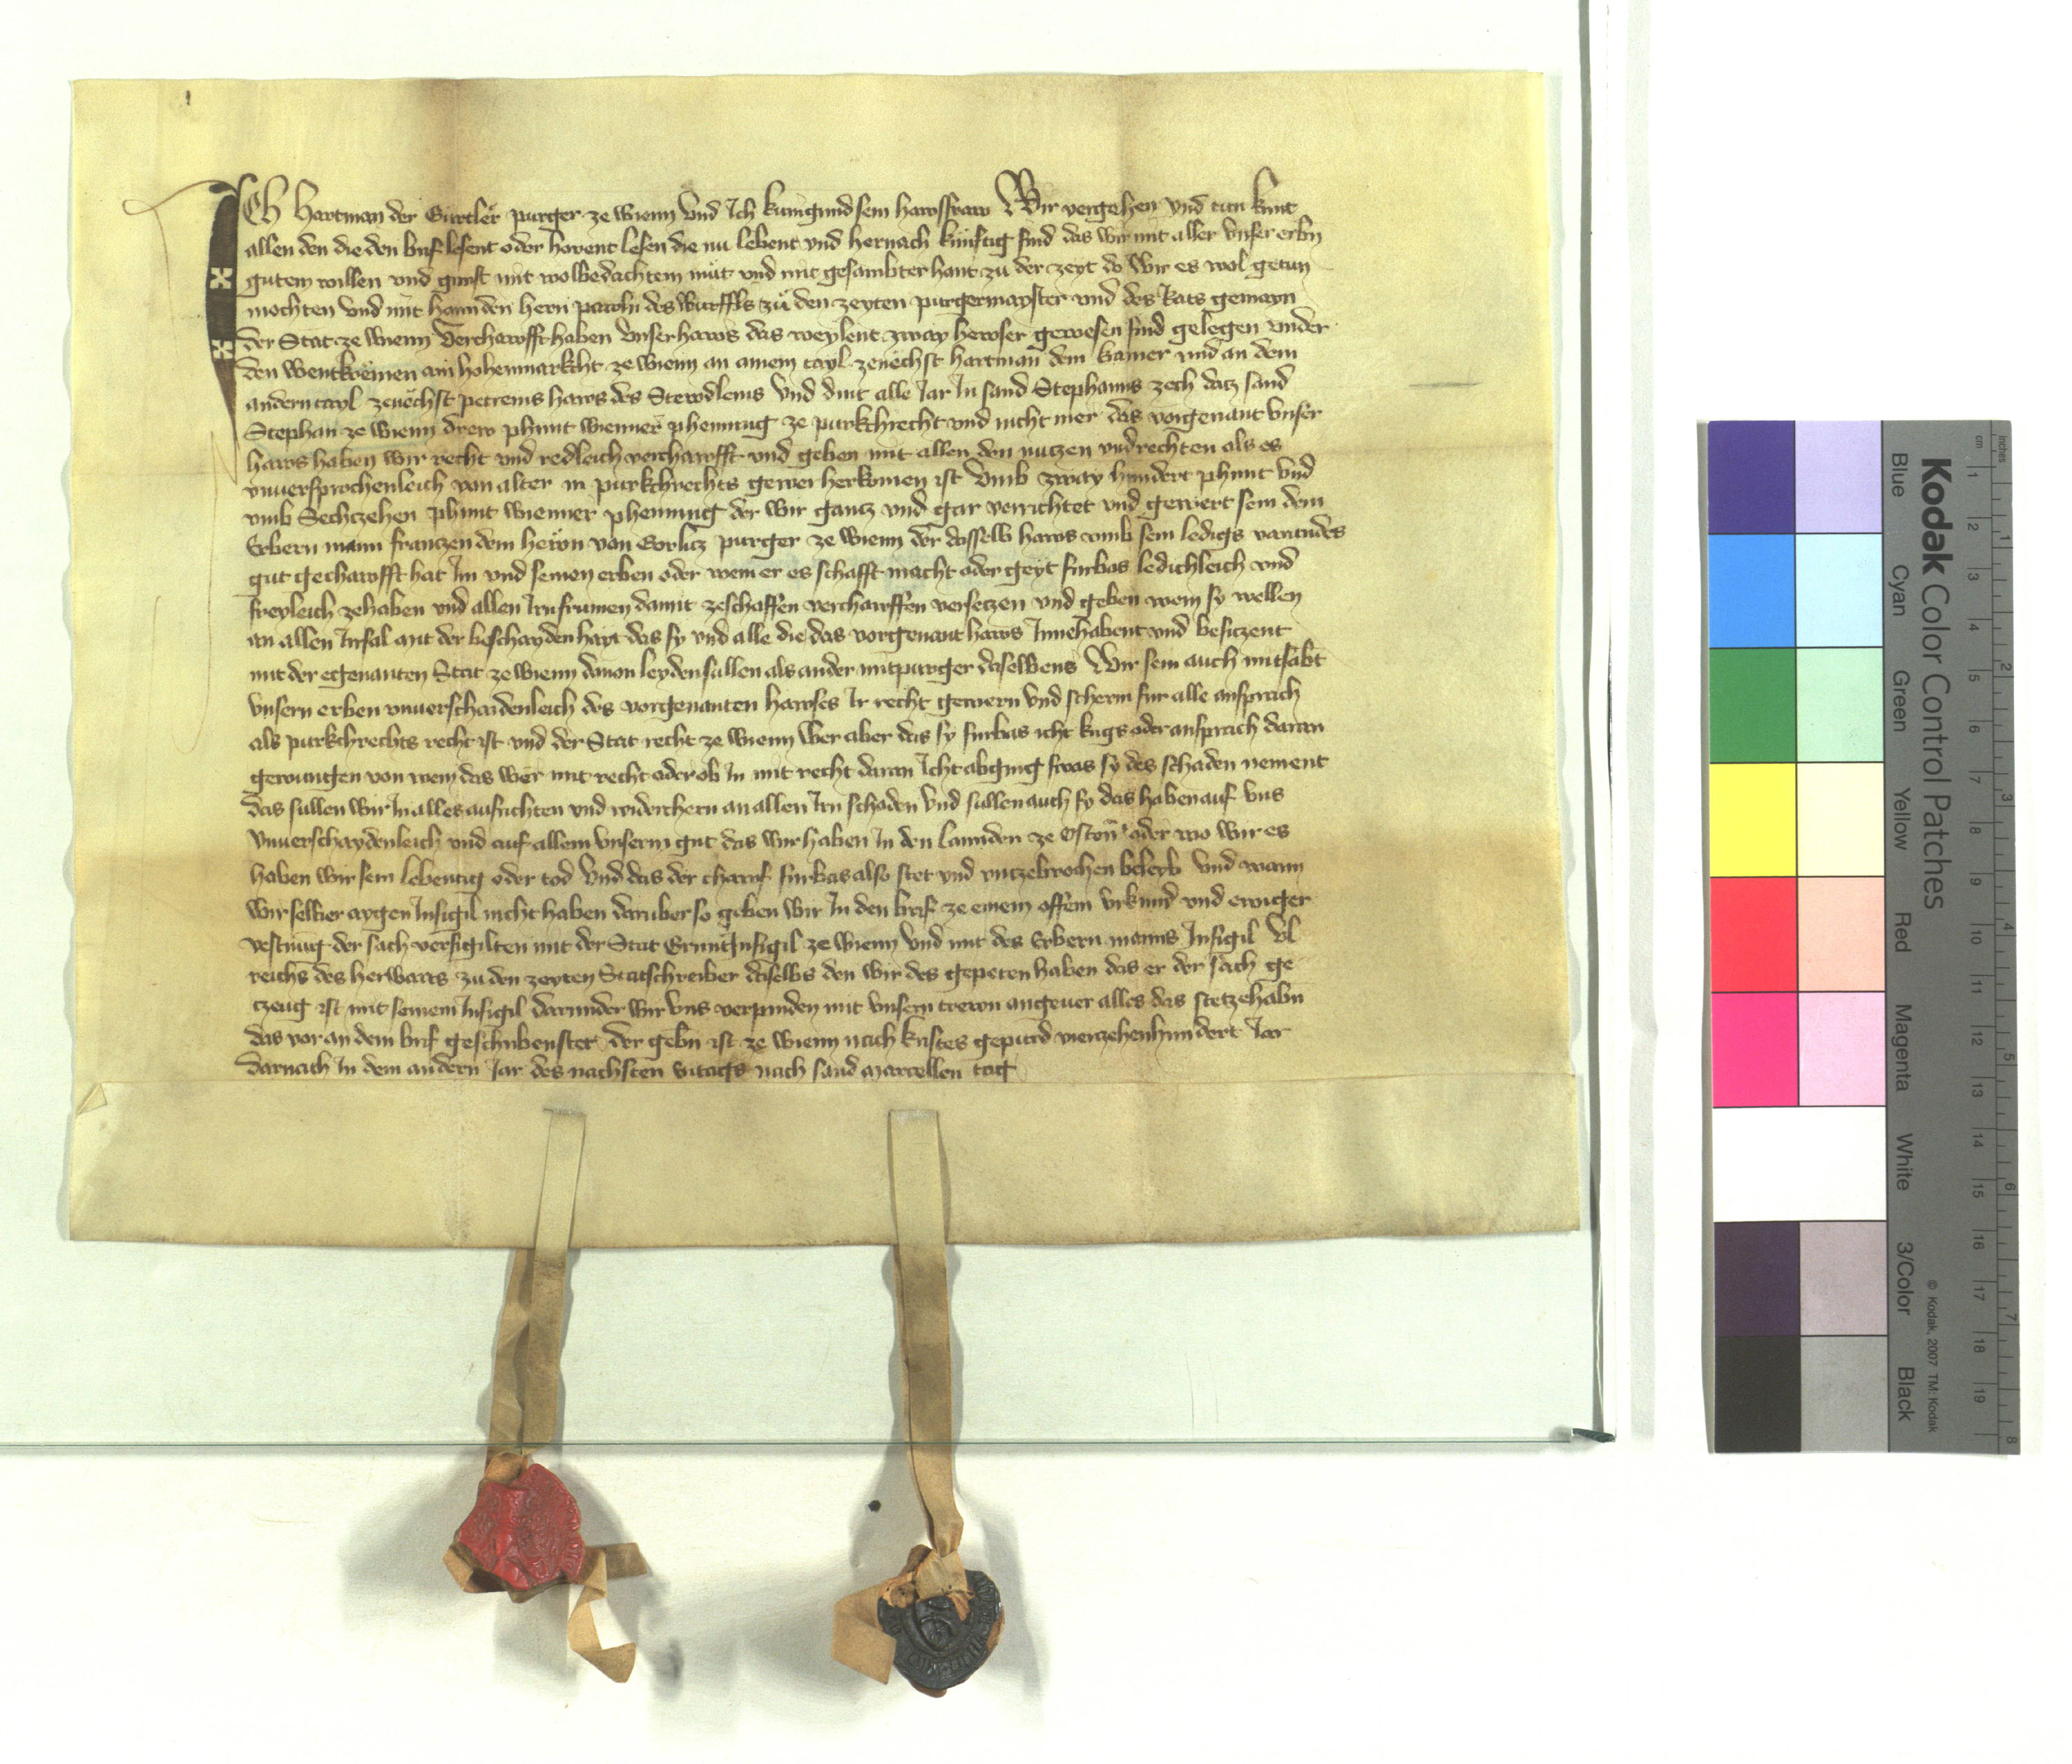 Ich Hartman der Gürtler purger ze wienn Vnd Ich kunigund sein hawsfraw Wir vergehen vnd tun kunt
allen den die den brif lesent oder horent lesen die nu lebent vnd hernach künftig sind das wir mit aller vnser erbn
gutem willen vnd gunst mit wolbedachtem müt vnd mit gesambter hant zu der zeyt do wir es wol getun
mochten vnd mit hannden hern pawln des Würffls zü den zeyten purgermayster vnd des Rats gemayn
der Stat ze wienn Verchawfft haben Vnser haws das weylent zway hewser gewesen sind gelegen vnder
den Wentkremen am hohenmarkht ze wienn an ainem tayl zenechst hartman dem Gamer vnd an dem
andern tayl zenechst petreins haws des Stewdleins Vnd dint alle Jar In sand Stephanns zech datz sand
Stephan ze wienn drew phunt wienner phenning ze purkchrecht vnd nicht mer das vorgenant vnser
haws haben wir recht vnd redleich verchawfft vnd geben mit allen den nutzen vnd rechten als es
vnuersprochenleich von alter in purkchrechts gewer herkomen ist Vmb zway hundert phunt Vnd
vmb Sechczehen phunt wienner phenning der wir gantz vnd gar verrichtet vnd gewert sein dem
Erbern mann franczen dem von Gorlicz purger ze wienn der dasselb haws vmb sein ledigs varundes
gut gechawfft hat Im vnd seinen erben oder wem er es schafft macht oder geyt furbas ledichleich vnd
freyleich zehaben vnd allen Irn frumen damit zeschaffen verchawffen versetzen vnd geben wem sy wellen
an allen Irrsal mit der beschaydenhayt das sy vnd alle die das vorgenant haws Innehabent vnd besiczent
mit der egenanten Stat ze wienn dauon leyden sullen als ander mitpurger daselbens Wir sein auch mitsabt
vnsern erben vnuerschaidenleich des vorgenanten hawses Ir recht gewern vnd scherm fur alle ansprach
als purkchrechts recht ist vnd der Stat recht ze wienn Wer aber das sy furbas icht krigs oder ansprach daran
gewungen von wem das wer mit recht oder ob In mit recht daran Icht abging swas sy des schaden nement
das sullen wir In alles ausrichten vnd widerchern an allen Irn schaden Vnd sullen auch sy das haben auf vns
vnuerschaydenleich vnd auf allem vnserm gut das wir haben In den lannden ze Osterr oder wo wir es
haben wir sein lebentig oder tod Vnd das der chawf furbas also stet vnd vnczebrochen beleyb Vnd wann
wir selber aygen Insigil nicht haben daruber so geben wir In den brif ze einem offem vrkund vnd ewiger
vestnug der sach versigilten mit der Stat GruntInsigil ze wienn Vnd mit des Erbern manns Insigil Vl
reichs des herwarts zu den zeyten Statschreiber daselbs den wir des gepeten haben das er der sach ge
czeug ist mit seinem Insigil darunder wir vns verpinden mit vnsern trewn angeuer alles das stet zehabn
das vor an dem brif geschriben stet der gebn ist ze wienn nach kristes gepurd vierzehenhundert Jar
darnach In dem andern Jar des nachsten vritags nach sand Marcellen tag
Kodak Color Control Patches
Blue Cyan Green Yellow Red Magenta White 3/Color Black
© Kodak, 2007 TM: Kodak
cm 1 2 3 4 5 6 7 8 9 10 11 12 13 14 15 16 17 18 19
Inches 1 2 3 4 5 6 7 8